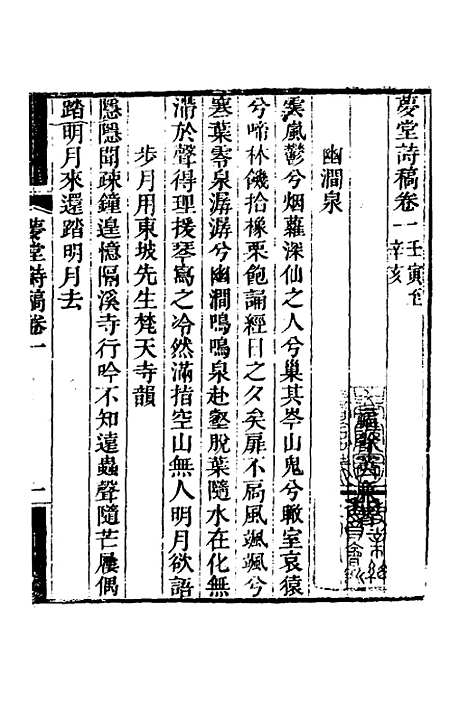 夢堂詩稿卷一 壬寅至辛亥
幽澗泉
雲風鬱兮烟蘿深仙之人兮巢其岑山鬼兮瞰室哀猿
兮啼林饑拾橡栗飽誦經日之久矣扉不扃風颯颯兮
寒葉零泉潺潺兮幽澗鳴鳴泉赴壑脫葉隨水在化無
滯於聲得理援琴寫之冷然滿指空山無人明月欲語
步月用東坡先生梵天寺韻
隱隱聞疎鐘遑憶隔溪寺行吟不知遠蟲聲隨芒屨偶
踏明月來還踏明月去
夢堂詩稿卷一
一